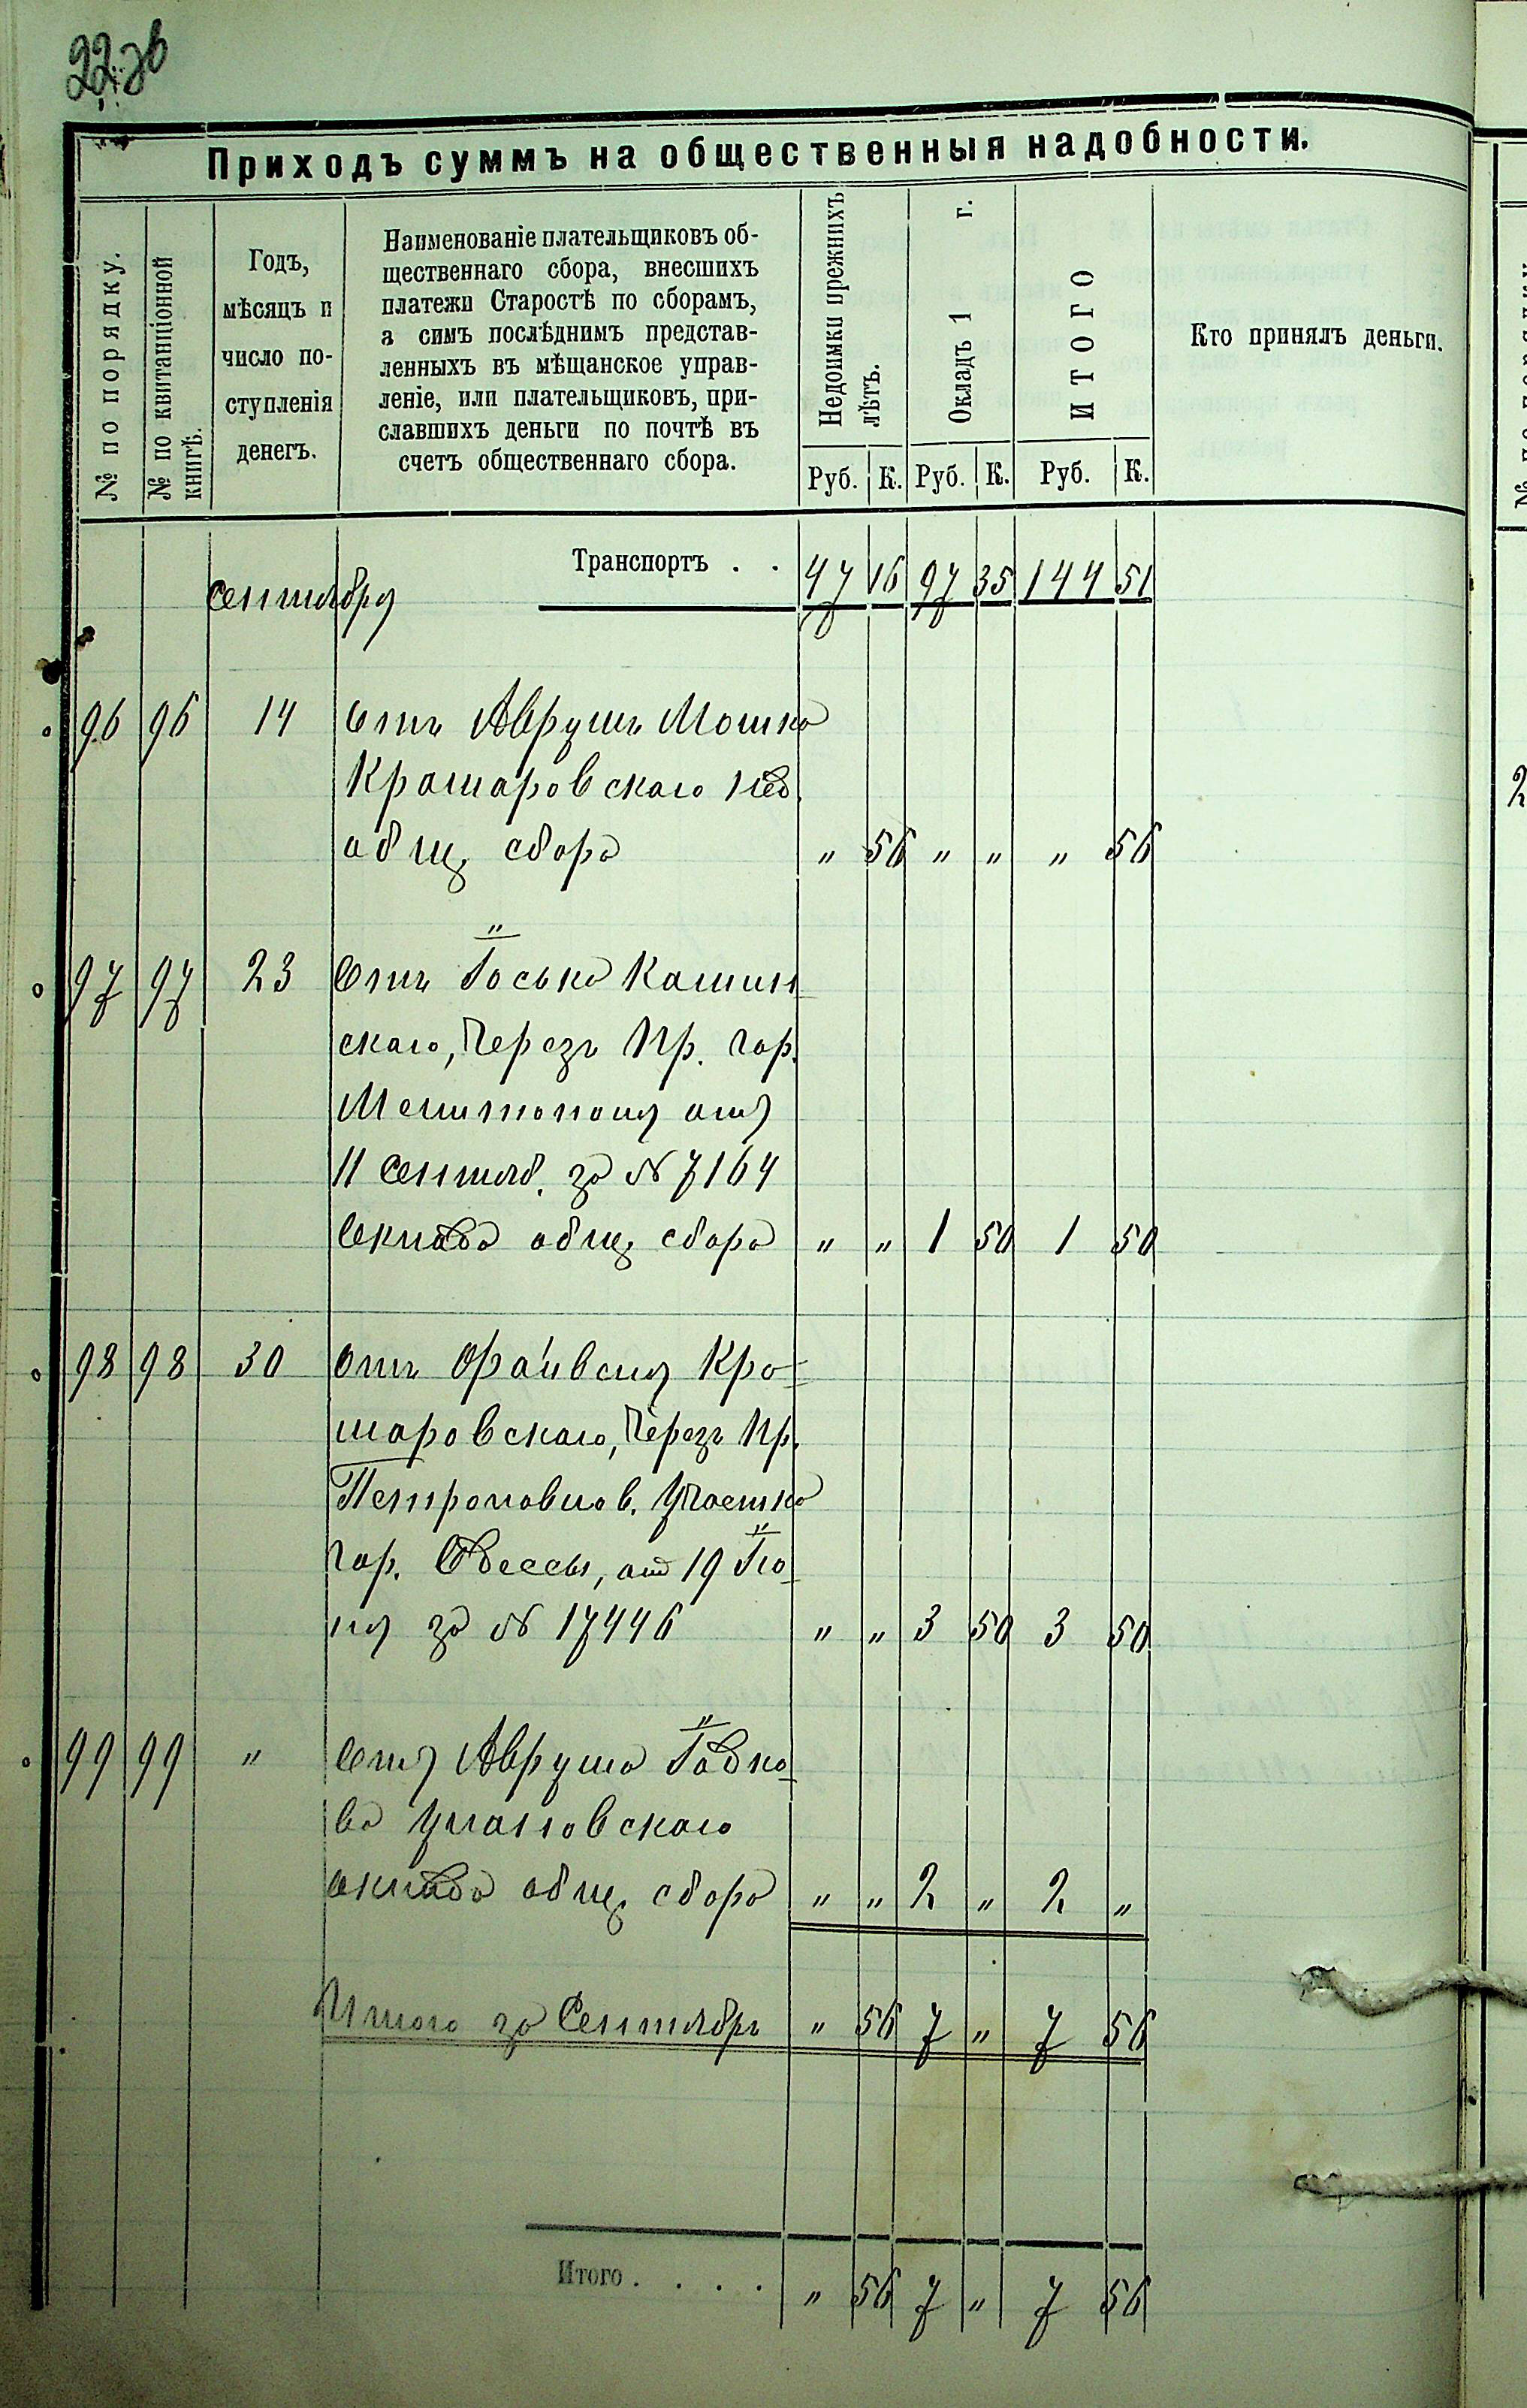 22зв
Приходъ суммъ на общественныя надобности.
№ по порядку.
№ по квитанціонной книгѣ.
Годъ,
мѣсяцъ и
число по-
ступленія
денегъ.
Наименованіе плательщиковъ об-
щественнаго сбора, внесшихъ
платежи Старостѣ по сборамъ,
а симъ послѣднимъ представ-
ленныхъ въ мѣщанское управ-
леніе, или плательщиковъ, при-
славшихъ деньги по почтѣ въ
счетъ общественнаго сбора.
Недоимки прежнихъ лѣтъ.
Окладъ 1 г.
ИТОГО
Кто принялъ деньги.
Руб. К. Руб. К. Руб. К.
Транспортъ . . 47 16 97 35 144 51
Сентября
96 96 14 Отъ Аврумъ Мошка
Крамаровскаго нед.
общ. сбора " 56 " " " 56
97 97 23 Отъ Іоська Камин
скаго, Черезъ Пр. Гор.
Мелитополя отъ
11 Сентяб. за № 7164
Оклада общ. сбора " " 1 50 1 50
98 98 30 Отъ Кра-
маровскаго, Черезъ Пр.
Петропавлов. Участка
Гор. Одессы, отъ 19 Ію
ля за № 17446 " " 3 50 3 50
99 99 " Отъ Аврума
ва Умановскаго
оклада общ. сбора " " 2 " 2 "
Итого за Сентябрь " 56 7 " 7 56
Итого . . . . " 56 7 " 7 56